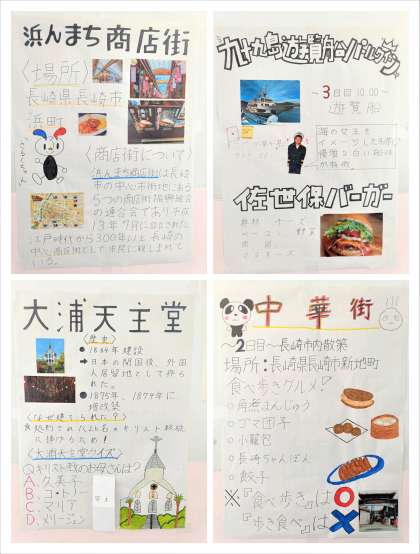 浜んまち商店街
〈場所〉
長崎県長崎市
浜町
〈商店街について〉
浜んまち商店街は長崎
市の中心市街地にある
5つの商店街振興組合
の連合会であり平成
13年7月に設立された
江戸時代から300年以上長崎の
中心商店街として市民に親しまれて
いる。
九十九島遊覧船パールクィーン
〜3日目10:00〜
遊覧船
海の女王を
イメージした
優雅な白い船体
が特徴
佐世保バーガー
具材 チーズ
ベーコン 野菜
目玉焼
マヨネーズ
大浦天主堂
〈歴史〉
1864年建設
日本の開国後、外国
人居留地として作ら
れた。
1875年、1879年に
増改築
〈なぜ建てられた?〉
に捧げるため!
〈大浦天主堂クイズ〉
Qキリスト教のお母さんは?
A. 久美子
B. ヨ・トリー
C. マリア
D. メリージェン
答え
中華街
〜2日目〜長崎市内散策
場所:長崎県長崎市新地町
食べ歩きグルメ!
○角煮まんじゅう
○ゴマ団子
○小籠包
○長崎ちゃんぽん
○餃子
※『食べ歩き』は○
『歩き食べ』は×